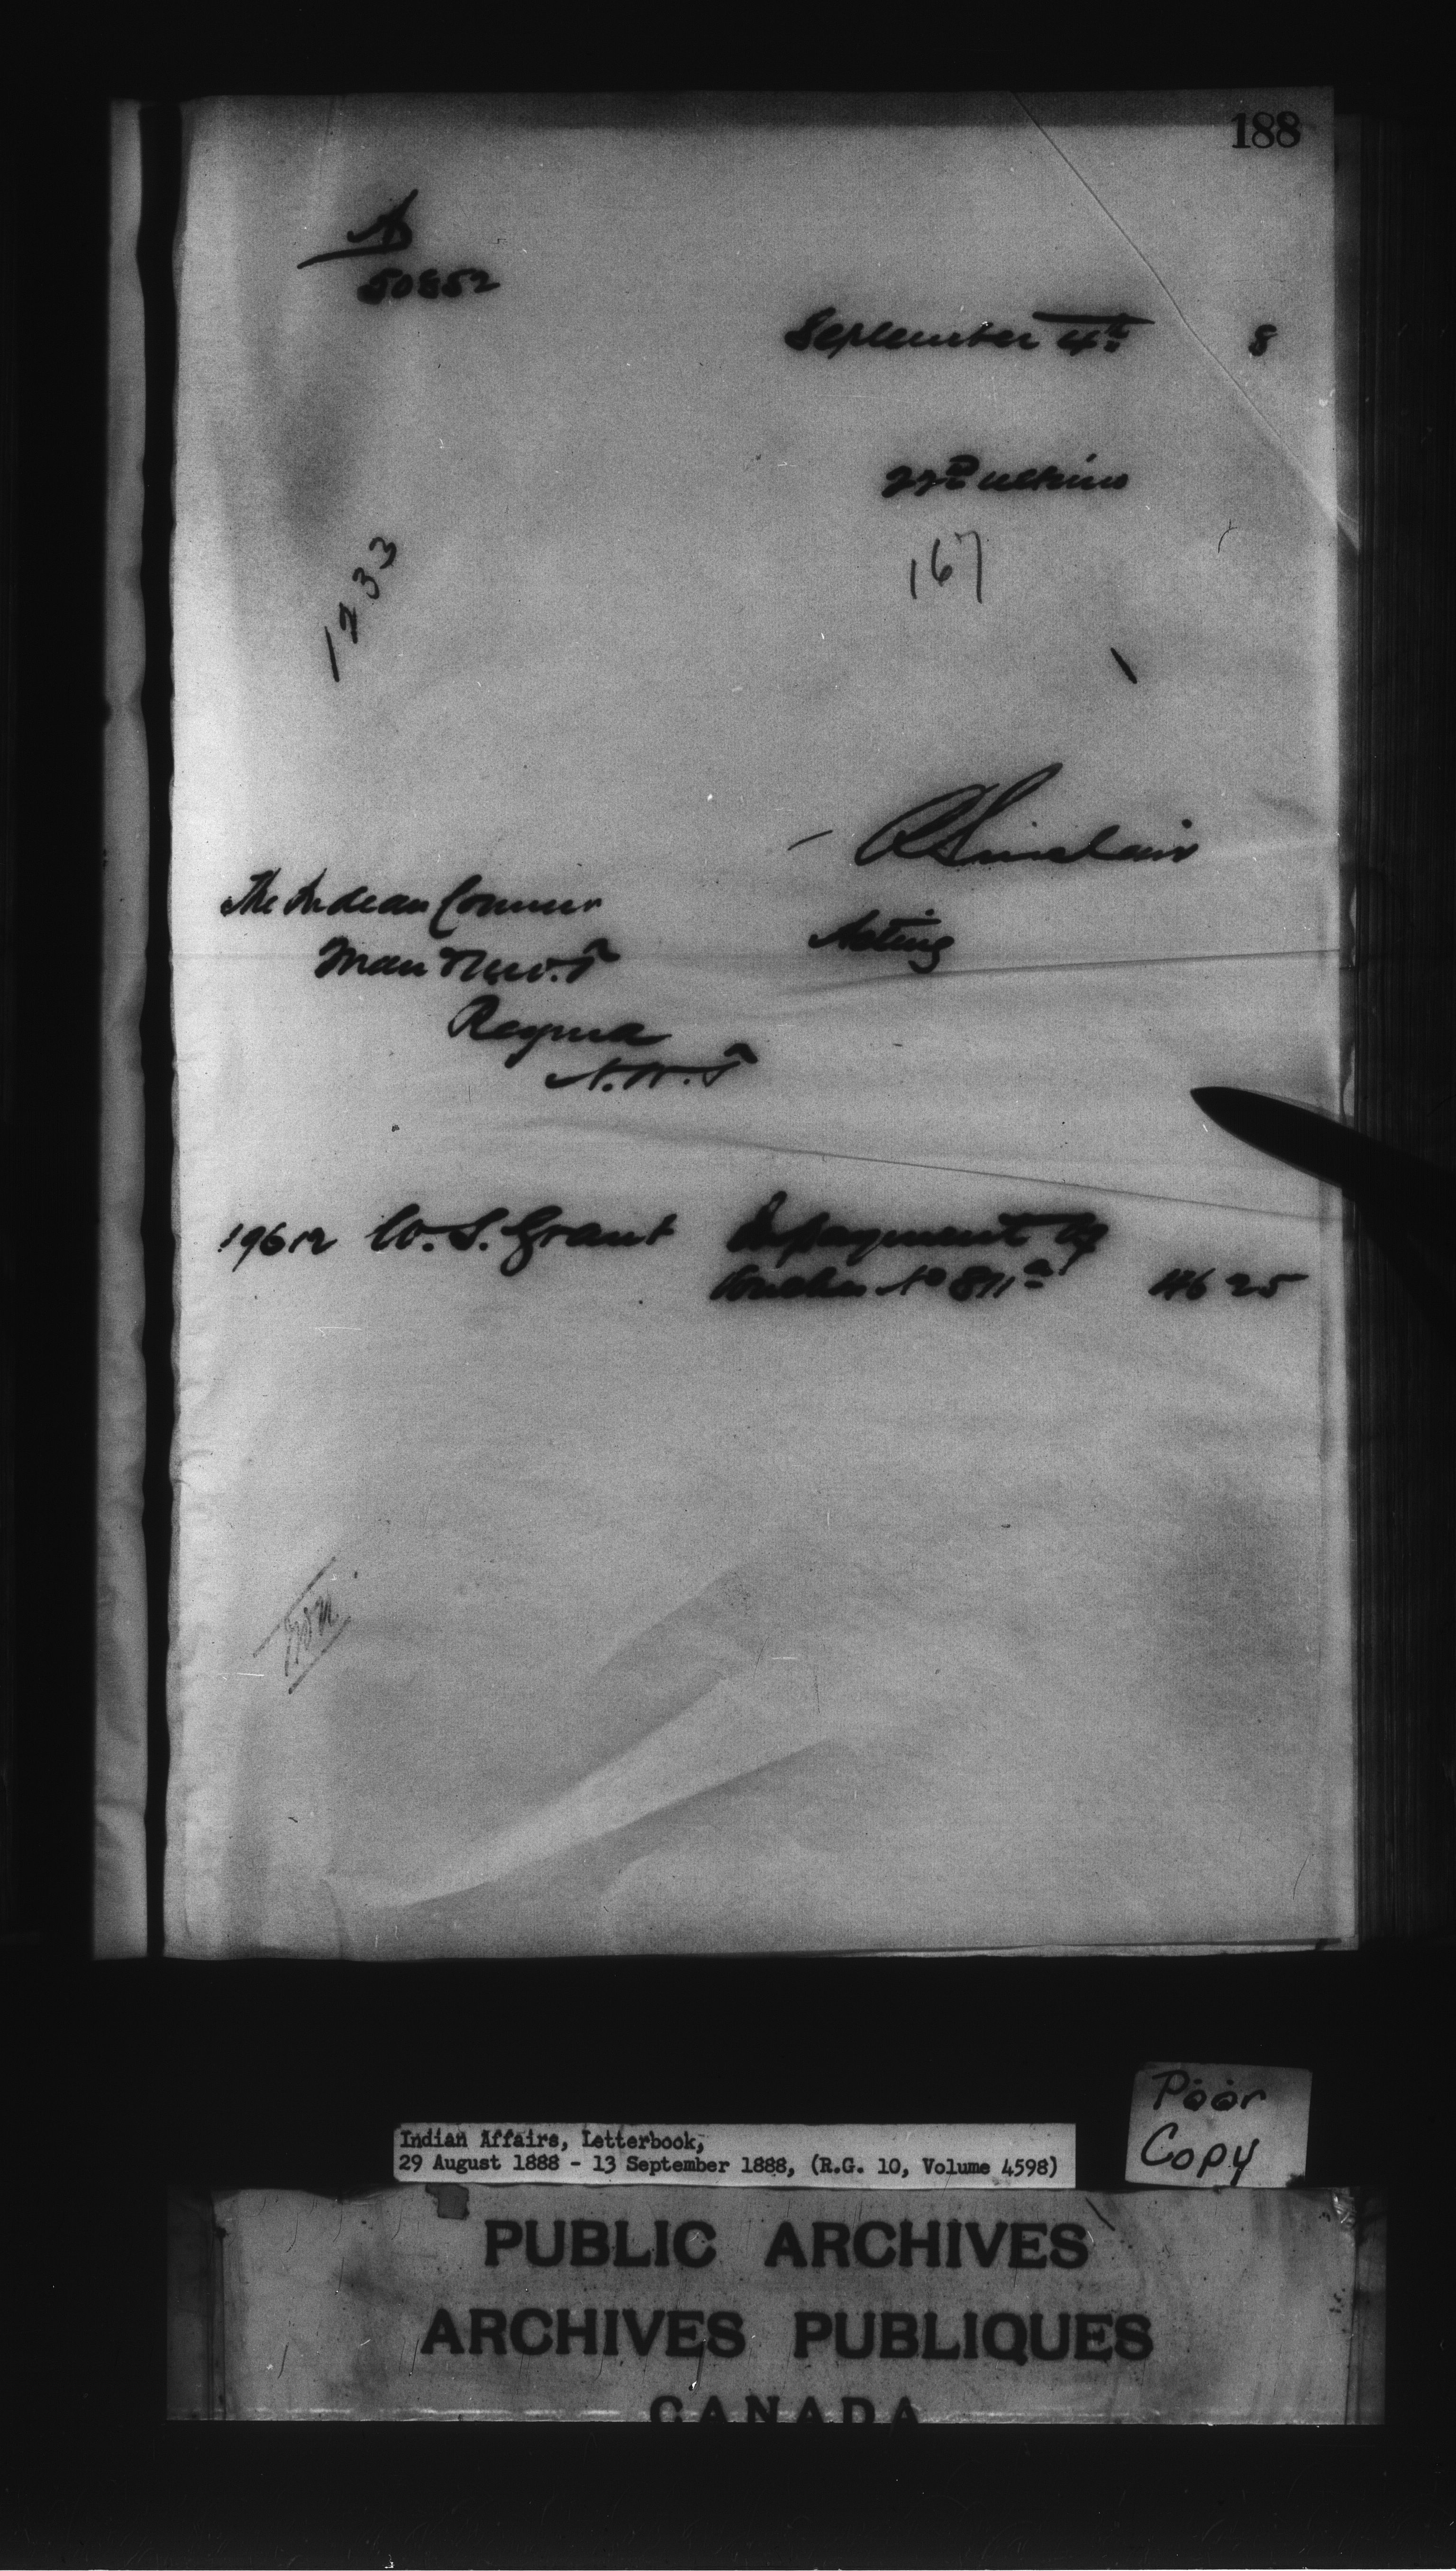 188
A
50852
September 4th 8
22nd ultimo
167
1233
R Sinclair
The Indian Commr
Acting
Man N.W.T
Regina
N.W.T
19612 W. S. Grant In payment of
Voucher No 811a 46 25
Poor
Copy
Indian Affairs, Letterbook,
29 August 1888 - 13 September 1888, (R.G. 10, Volume 4598)
PUBLIC ARCHIVES
ARCHIVES PUBLIQUES
CANADA